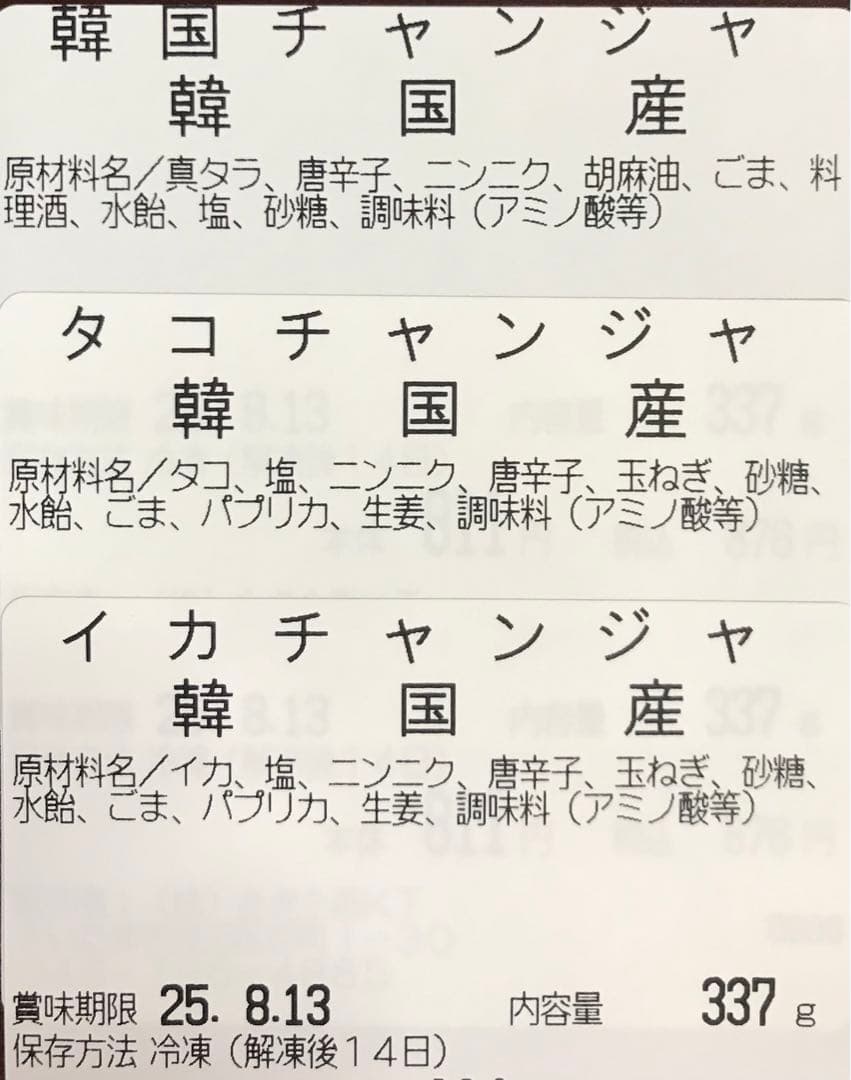 韓国チャンジャ
韓国産
原材料名／真タラ、唐辛子、ニンニク、胡麻油、ごま、料
理酒、水飴、塩、砂糖、調味料（アミノ酸等）
タコチャンジャ
韓国産
原材料名／タコ、塩、ニンニク、唐辛子、玉ねぎ、砂糖、
水飴、ごま、パプリカ、生姜、調味料（アミノ酸等）
イカチャンジャ
韓国産
原材料名／イカ、塩、ニンニク、唐辛子、玉ねぎ、砂糖、
水飴、ごま、パプリカ、生姜、調味料（アミノ酸等）
賞味期限 25. 8.13 内容量 337 g
保存方法 冷凍（解凍後１４日）